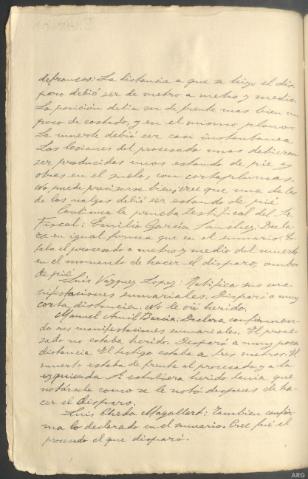 defensas: La distancia a que se hizo el dis-
paro debió ser de metro a metro y medio
La posición debía ser de frente mas bien un
poco de costado, y en el mismo plano.
La muerte debió ser casi instantánea
Las lesiones del procesado unas debieron
ser producidas unas estando de pie y
otras en el suelo, con cortaplumas,
puede precisarse bien, cree que una de las
de las nalgas debió ser estando de pié
Continua la prueba testifical del Sr
Fiscal: Emilio Garcia Sanchez, Decla-
ra en igual forma que en el sumario. Es-
taba el procesado a metro y medio del muerto
en el momento de hacer el disparo, ambos
de pié
Luis Vazquez Lopez: Ratifica sus ma-
nifestaciones sumariales. Disparó a muy
corta distancia. No le vio herido.
Manuel Amil Dacia: Declara confirman-
do sus manifestaciones sumariales. El proce-
sado no estaba herido. Disparó a muy poca
distancia. El testigo estaba a tres metros. El
muerto estaba de frente al procesado y a la
izquierda. Si estuviera herido tenia que
notársele como se le notó despues de ha-
cer el disparo.
Luis Checa Magallert: Tambien confir-
ma lo declarado en el sumario. Que fué el
procesado el que disparó.
ARG